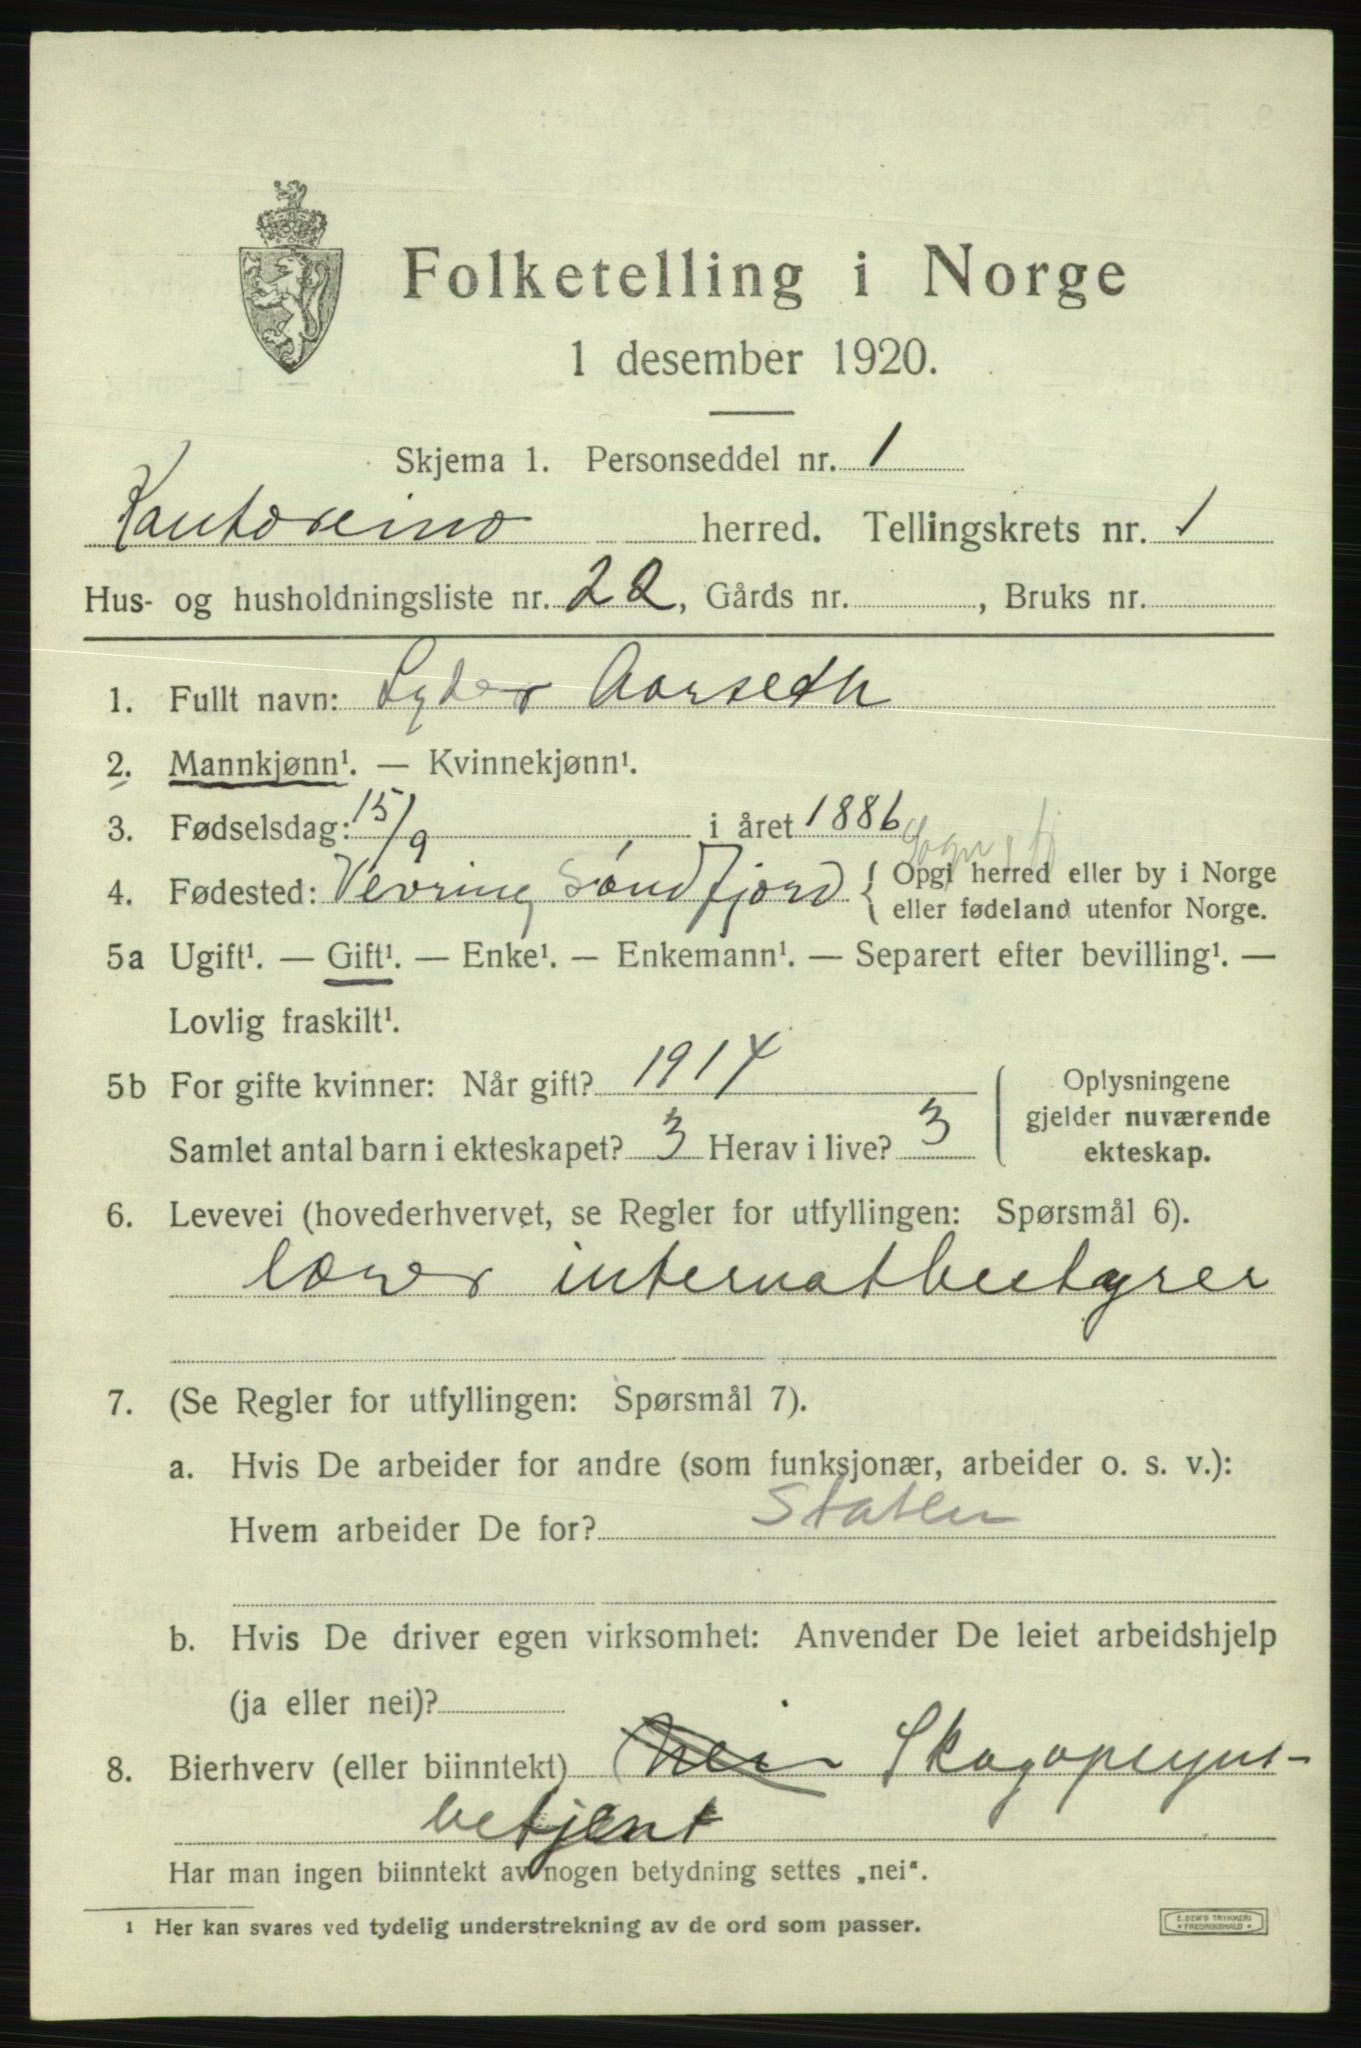 Folketelling i Norge
1 desember 1920.
Skjema 1. Personseddel nr. 1
Kautokeino herred. Tellingskrets nr. 1
Hus- og husholdningsliste nr. 22, Gårds nr. , Bruks nr.
1. Fullt navn: Lyder Aarseth
2. Mannkjønn¹. — Kvinnekjønn¹.
3. Fødselsdag: 15/9 i året 1886
Sogn, fj
4. Fødested: Vevring Søndfjord { Opgi herred eller by i Norge
eller fødeland utenfor Norge.
5a Ugift¹. — Gift¹. — Enke¹. — Enkemann¹. — Separert efter bevilling¹. —
Lovlig fraskilt¹.
5b For gifte kvinner: Når gift? 1914
Samlet antal barn i ekteskapet? 3 Herav i live? 3
Oplysningene
gjelder nuværende
ekteskap.
6. Levevei (hovederhvervet, se Regler for utfyllingen: Spørsmål 6).
lærer internatbestyrer
7. (Se Regler for utfyllingen: Spørsmål 7).
a. Hvis De arbeider for andre (som funksjonær, arbeider o. s. v.):
Hvem arbeider De for? Staten
b. Hvis De driver egen virksomhet: Anvender De leiet arbeidshjelp
(ja eller nei)?
8. Bierhverv (eller biinntekt) Nei Skogopsyns-
betjent
Har man ingen biinntekt av nogen betydning settes „nei“.
¹ Her kan svares ved tydelig understrekning av de ord som passer.
E. SEM'S TRYKKERI
FREDRIKSHALD